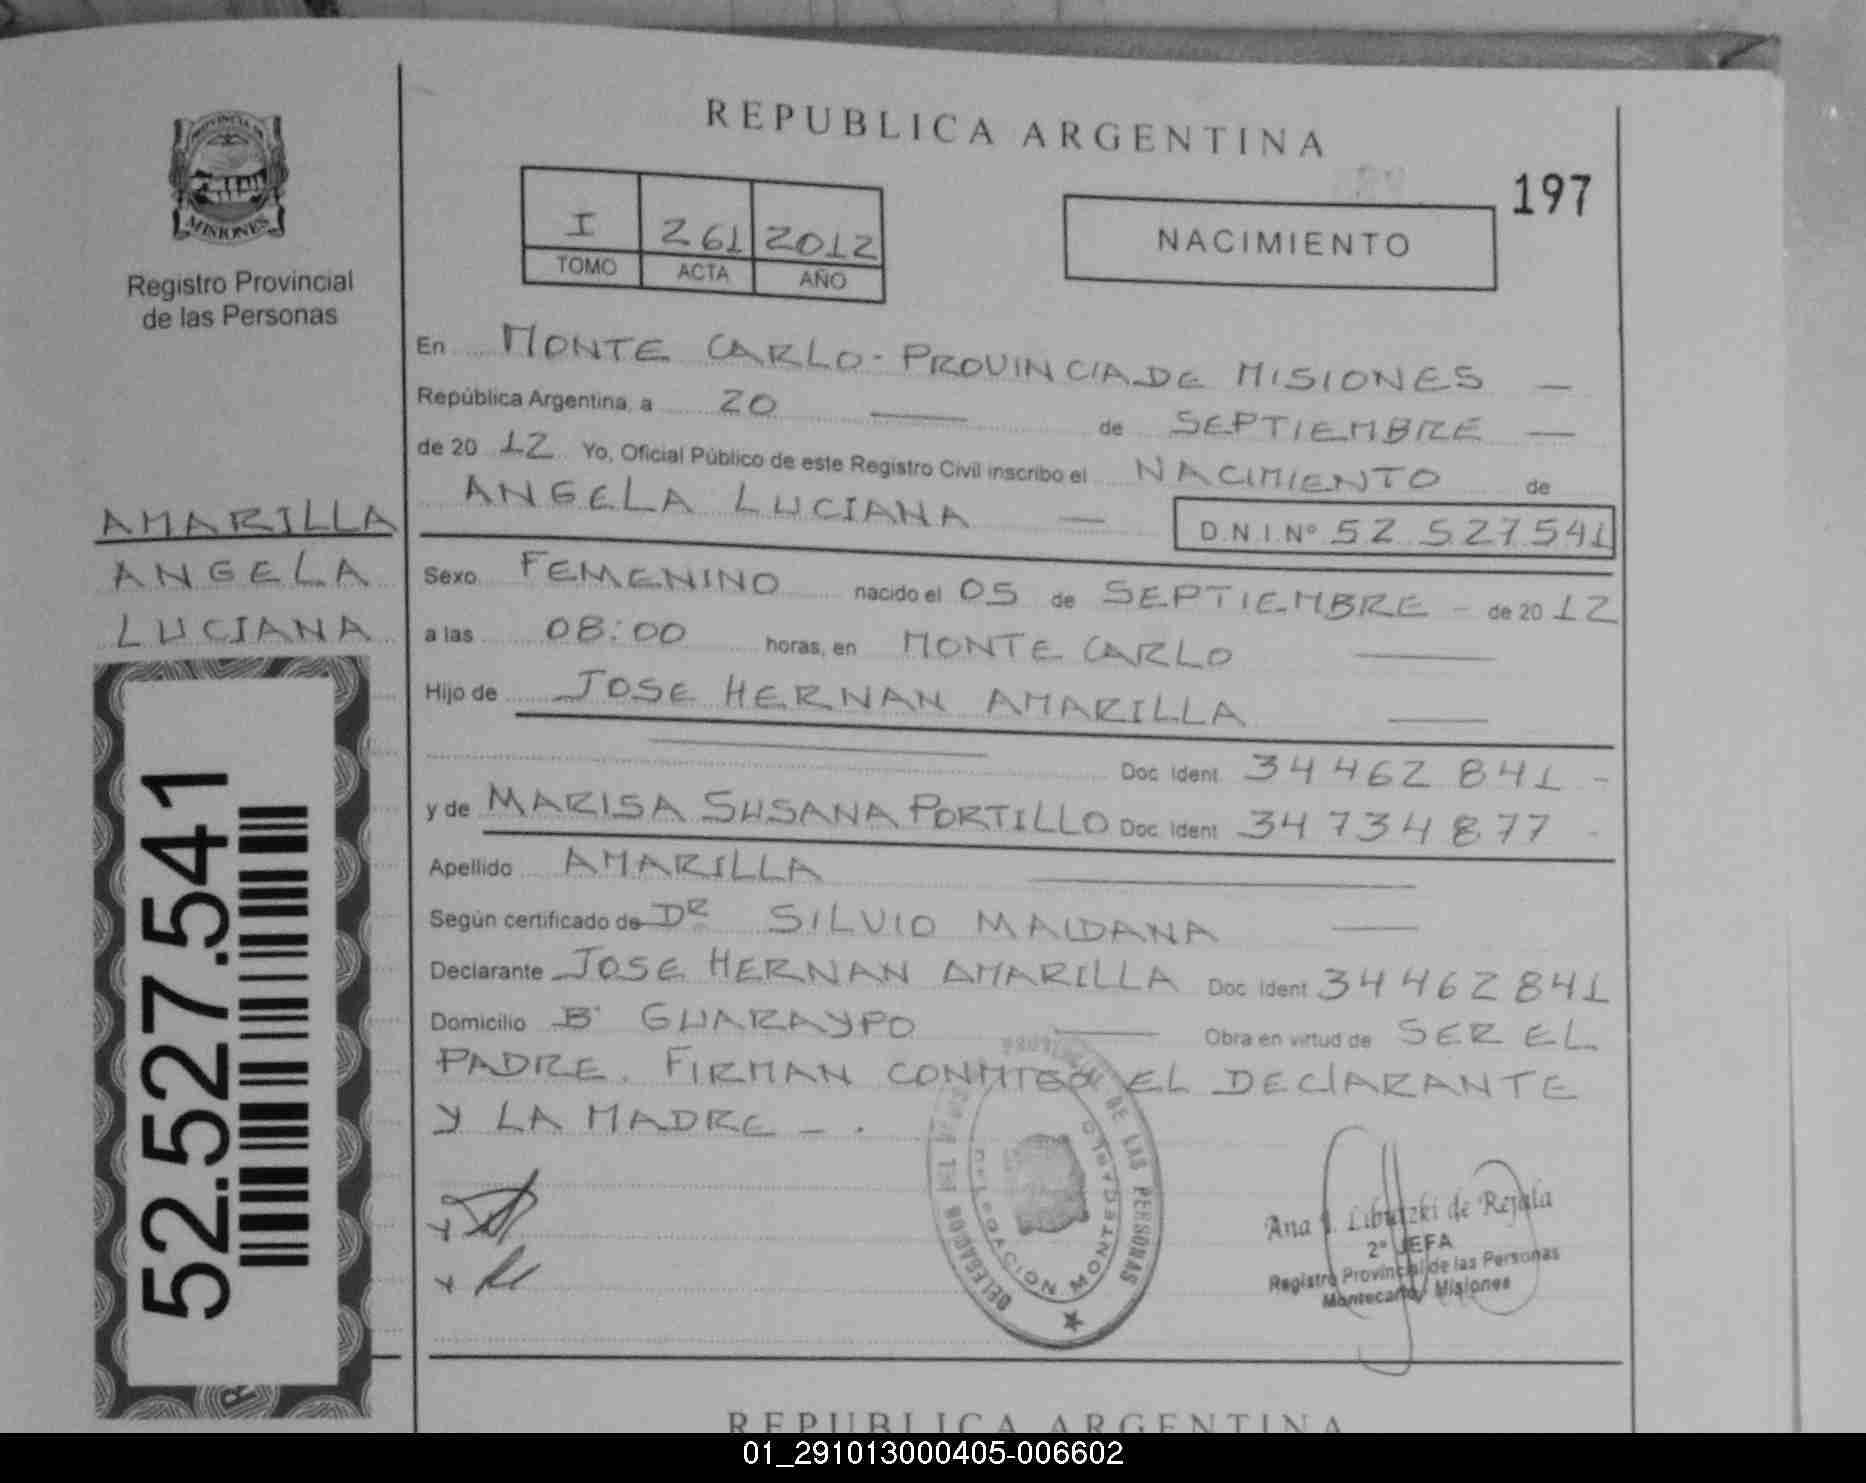 REPUBLICA ARGENTINA
197
PROVINCIA DE
MISIONES
Registro Provincial
de las Personas
I 261 2012
TOMO ACTA AÑO
NACIMIENTO
En MONTE CARLO - PROVINCIA DE MISIONES —
República Argentina, a 20 — de SEPTIEMBRE —
de 20 12 Yo, Oficial Público de este Registro Civil inscribo el NACIMIENTO de
ANGELA LUCIANA — D.N.I.Nº 52.527.541
AMARILLA
ANGELA
LUCIANA
Sexo FEMENINO nacido el 05 de SEPTIEMBRE - de 20 12
a las 08:00 horas, en MONTE CARLO —
Hijo de JOSE HERNAN AMARILLA —
Doc. Ident. 34 462 841 -
y de MARISA SUSANA PORTILLO Doc. Ident. 34 734 877 -
Apellido AMARILLA —
Según certificado de DR SILVIO MAIDANA —
Declarante JOSE HERNAN AMARILLA Doc. Ident. 34 462 841
Domicilio Bº GUARAYPO — Obra en virtud de SER EL
PADRE. FIRMAN CONMIGO EL DECLARANTE
Y LA MADRE - .
52.527.541
DE LAS PERSONAS
DELEGACION MONTECARLO
2º JEFA
Registro Provincial de las Personas
Montecarlo Misiones
REPUBLICA ARGENTINA
01_291013000405-006602